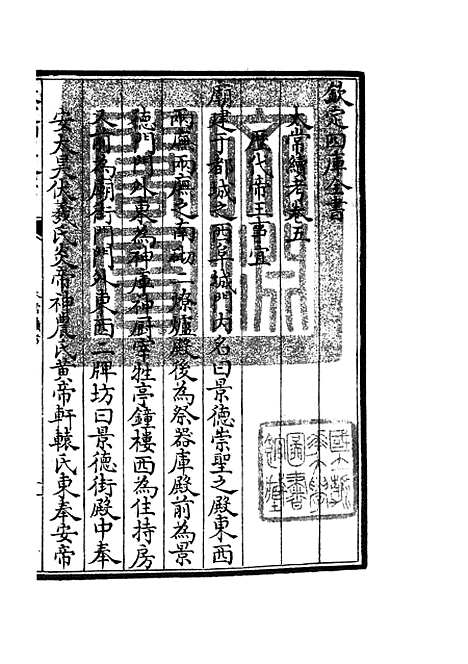 欽定四庫全書
太常續考卷五
歴代帝王事宜
廟建于都城之西阜城門内名曰景德崇聖之殿東西
兩廡兩廡之南砌二燎爐殿後為祭器庫殿前為景
德門門外東為神庫神厨宰牲亭鐘樓西為住持房
又前為廟街門門外東西二牌坊曰景德街殿中奉
安太昊伏羲氏炎帝神農氏黄帝軒轅氏東奉安帝